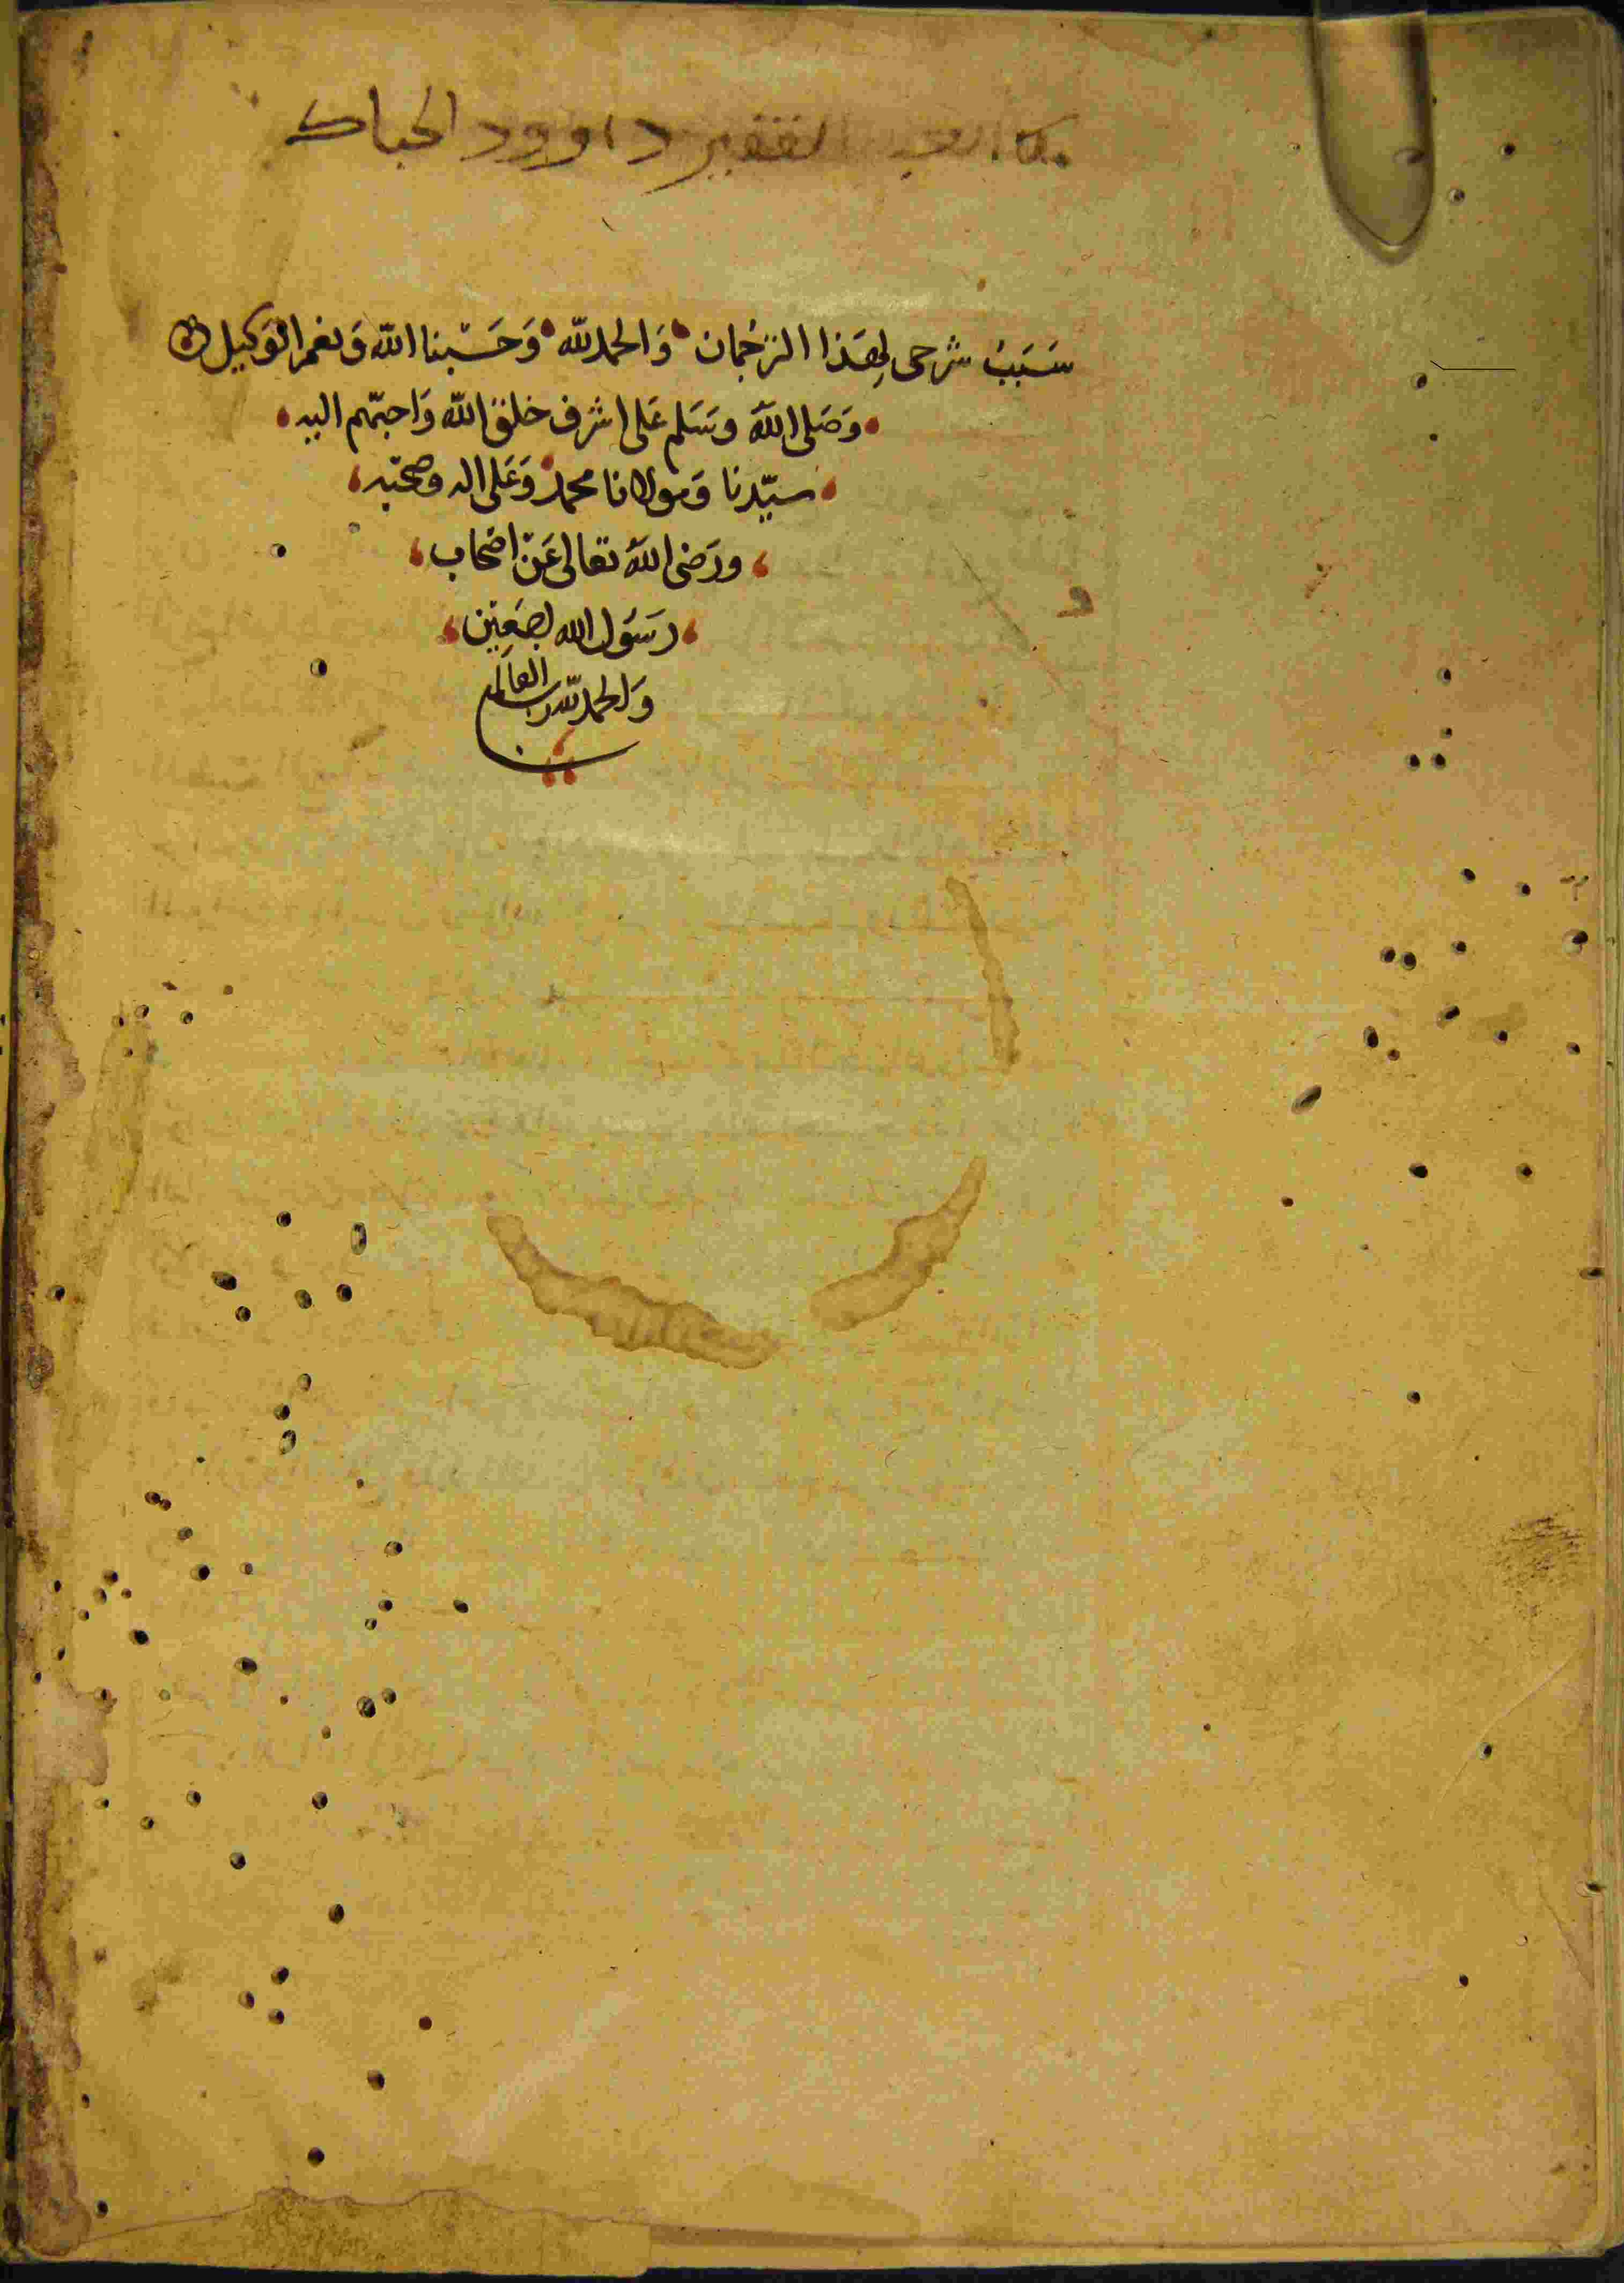 العبد الفقير داوود الحباك
سَبَبُ شرحى لِهَذا الترجُمان وَالحمد لله وَحَسْبنا الله وَنعم الوَكيل
وَصَلى الله وسَلم عَلى اشرف خلق الله وَاحبّهم اليه
سيّدنا وَمولانا محمد وَعَلى اله وصحْبه
ورَضى الله تعالى عَن اصْحاب
رسَول الله اجمَعِين
وَالحمد لله رب العالمين